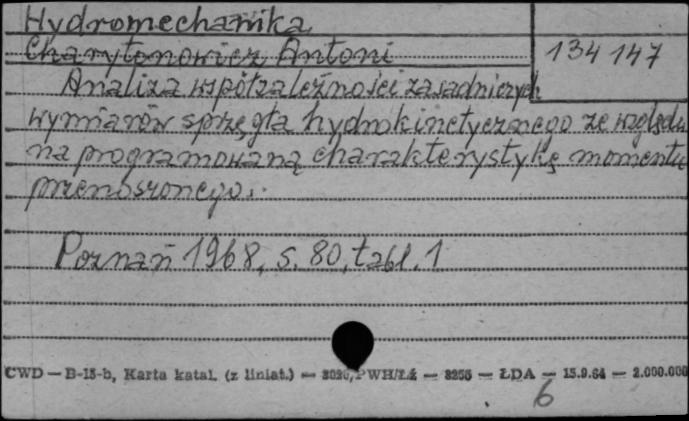 Hydromechanika
Charytonowicz Antoni
134 147
Analiza współzależności zasadniczych
wymiarów sprzęgła hydrokinetycznego ze względu
na programowaną charakterystykę momentu
przenoszonego.
Poznań 1968, s. 80, tabl. 1
CWD — B-15-b, Karta katal. (z liniat.) — PWH/Łź — 8255 — ŁDA — 15.9.64 — 2.000.000
6